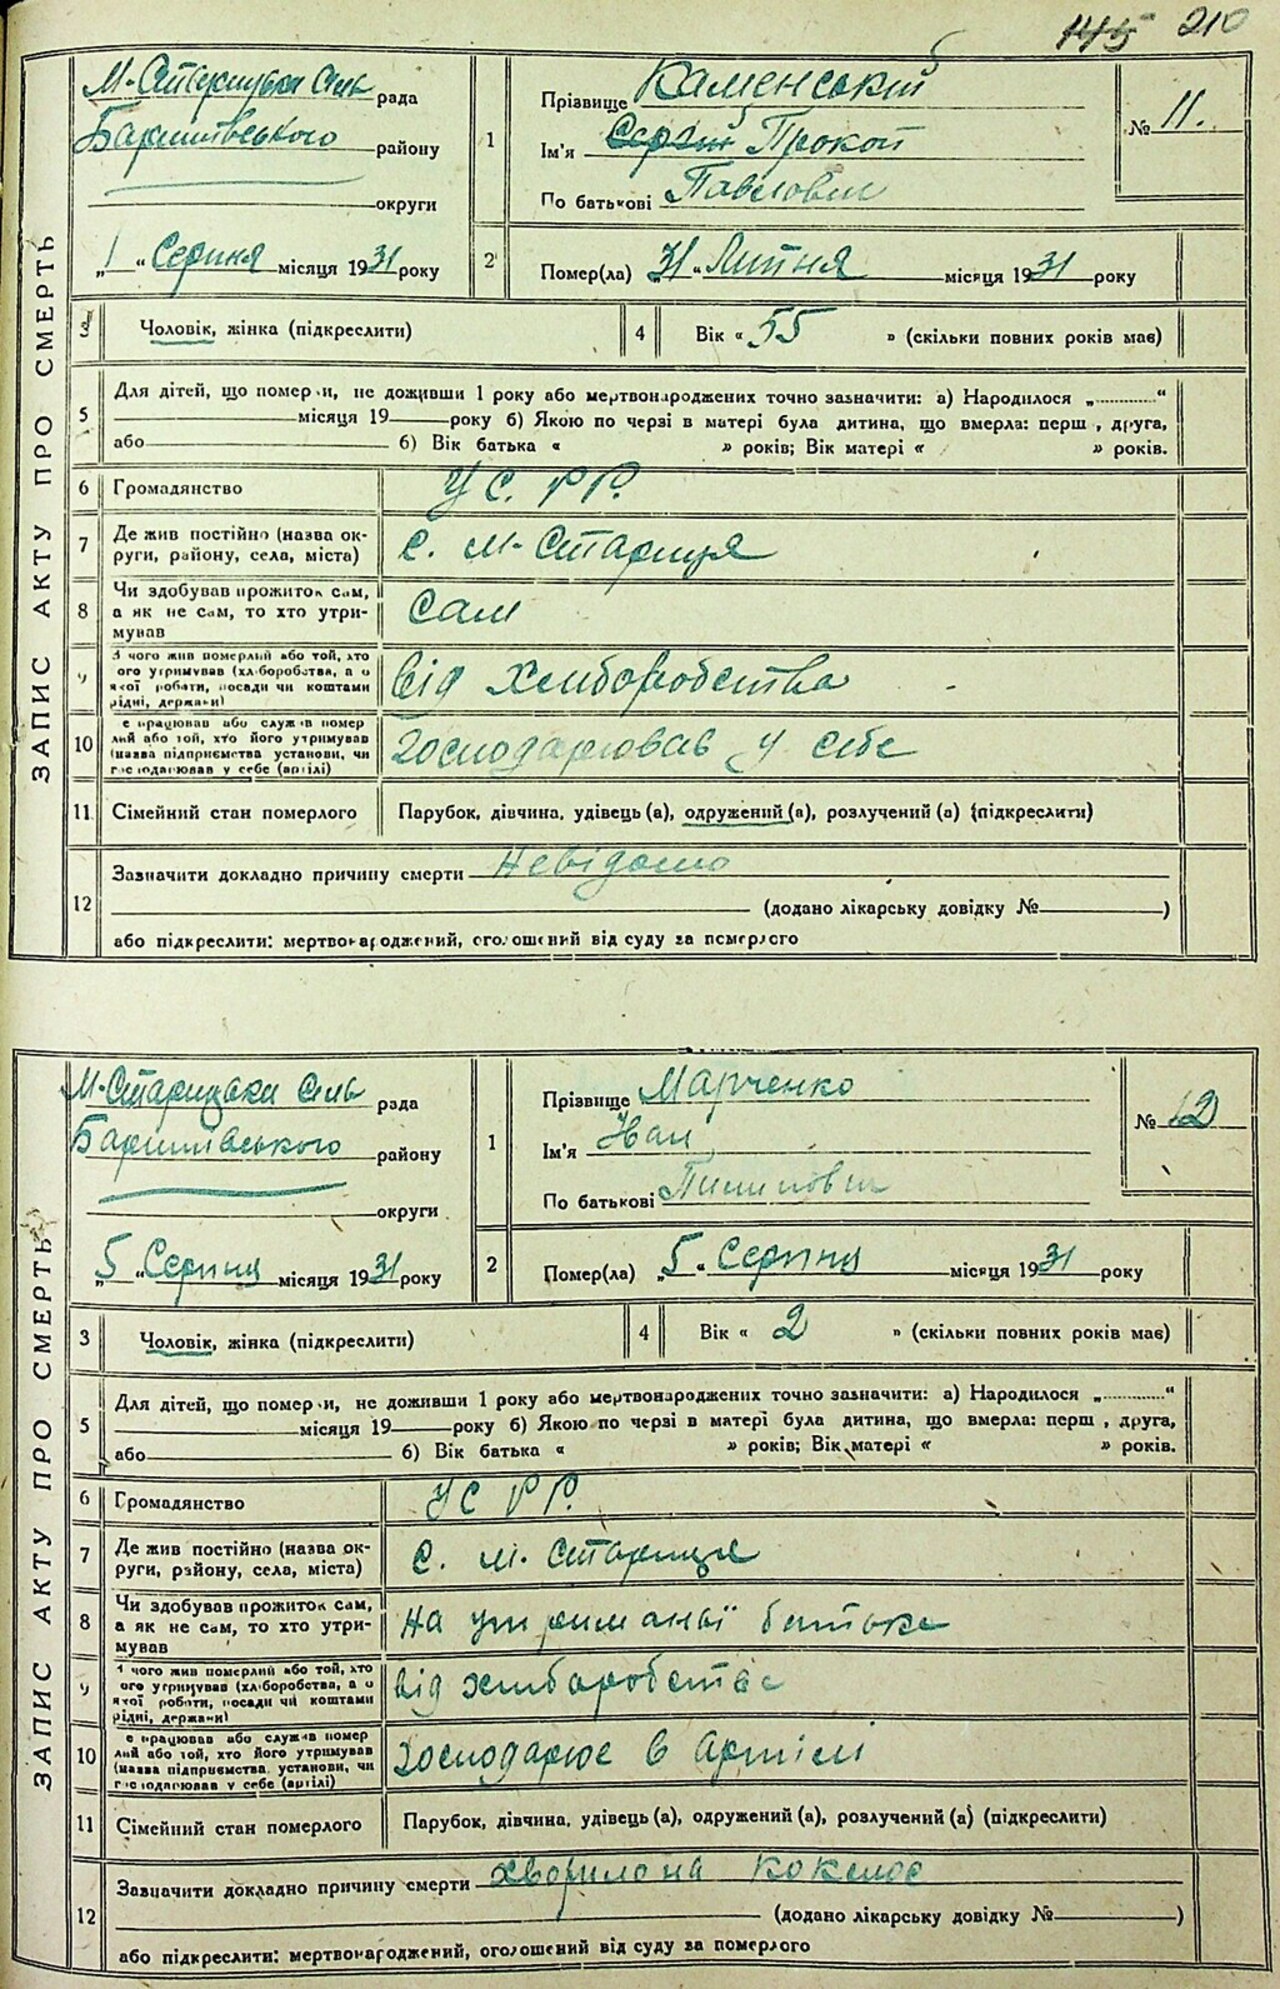 145 210
ЗАПИС АКТУ ПРО СМЕРТЬ
М-Старицька Сіль рада
Баришівського району
округи
„1“ Серпня місяця 1931 року
1
Прізвище Каменський
Ім'я Сергій Прокоп
По батькові Павлович
№ 11.
2
Помер(ла) „31“ Липня місяця 1931 року
3 Чоловік, жінка (підкреслити)
4 Вік « 55 » (скільки повних років має)
5 Для дітей, що помер и, не доживши 1 року або мертвонароджених точно зазначити: а) Народилося „............“
місяця 19 року б) Якою по черзі в матері була дитина, що вмерла: перш , друга,
або б) Вік батька « » років; Вік матері « » років.
6 Громадянство УС.РР.
7 Де жив постійно (назва ок-
руги, району, села, міста) с. М-Стариця
8 Чи здобував прожиток сам,
а як не сам, то хто утри-
мував Сам
9 З чого жив померлий або той, хто
ого утримував (хліборобства, а о
якої роботи, посади чи коштами
рідні, держави) від хліборобства
10 е працював або служив помер
лий або той, хто його утримував
(назва підприємства установи, чи
господарював у себе (артілі) Господарював у себе
11 Сімейний стан померлого Парубок, дівчина, удівець (а), одружений (а), розлучений (а) (підкреслити)
12 Зазначити докладно причину смерти Невідомо
(додано лікарську довідку № )
або підкреслити: мертвонароджений, оголошений від суду за померлого
ЗАПИС АКТУ ПРО СМЕРТЬ
М-Старицька Сіль рада
Баришівського району
округи
„5“ Серпня місяця 1931 року
1
Прізвище Марченко
Ім'я Іван
По батькові Пилипович
№ 12
2
Помер(ла) „5“ Серпня місяця 1931 року
3 Чоловік, жінка (підкреслити)
4 Вік « 2 » (скільки повних років має)
5 Для дітей, що помер и, не доживши 1 року або мертвонароджених точно зазначити: а) Народилося „............“
місяця 19 року б) Якою по черзі в матері була дитина, що вмерла: перш , друга,
або б) Вік батька « » років; Вік матері « » років.
6 Громадянство УСРР.
7 Де жив постійно (назва ок-
руги, району, села, міста) с. М. Стариця
8 Чи здобував прожиток сам,
а як не сам, то хто утри-
мував на утриманьї батька
9 З чого жив померлий або той, хто
ого утримував (хліборобства, а о
якої роботи, посади чи коштами
рідні, держави) від хліборобства
10 е працював або служив помер
лий або той, хто його утримував
(назва підприємства установи, чи
господарював у себе (артілі) Господарює в Артілі
11 Сімейний стан померлого Парубок, дівчина, удівець (а), одружений (а), розлучений (а) (підкреслити)
12 Зазначити докладно причину смерти хворило на коклюс
(додано лікарську довідку № )
або підкреслити: мертвонароджений, оголошений від суду за померлого